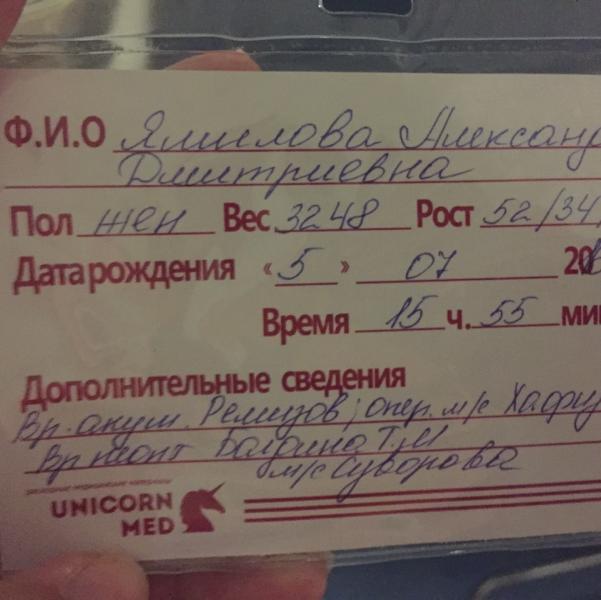 Ф.И.О Ямилова Александ
Дмитриевна
Пол жен Вес 3248 Рост 52/34
Дата рождения «5» 07 20
Время 15 ч. 55 ми
Дополнительные сведения
Вр. акуш. Ремизов; опер. м/с Хафи
Вр неонт Т.И
м/с Суворова
UNICORN
MED